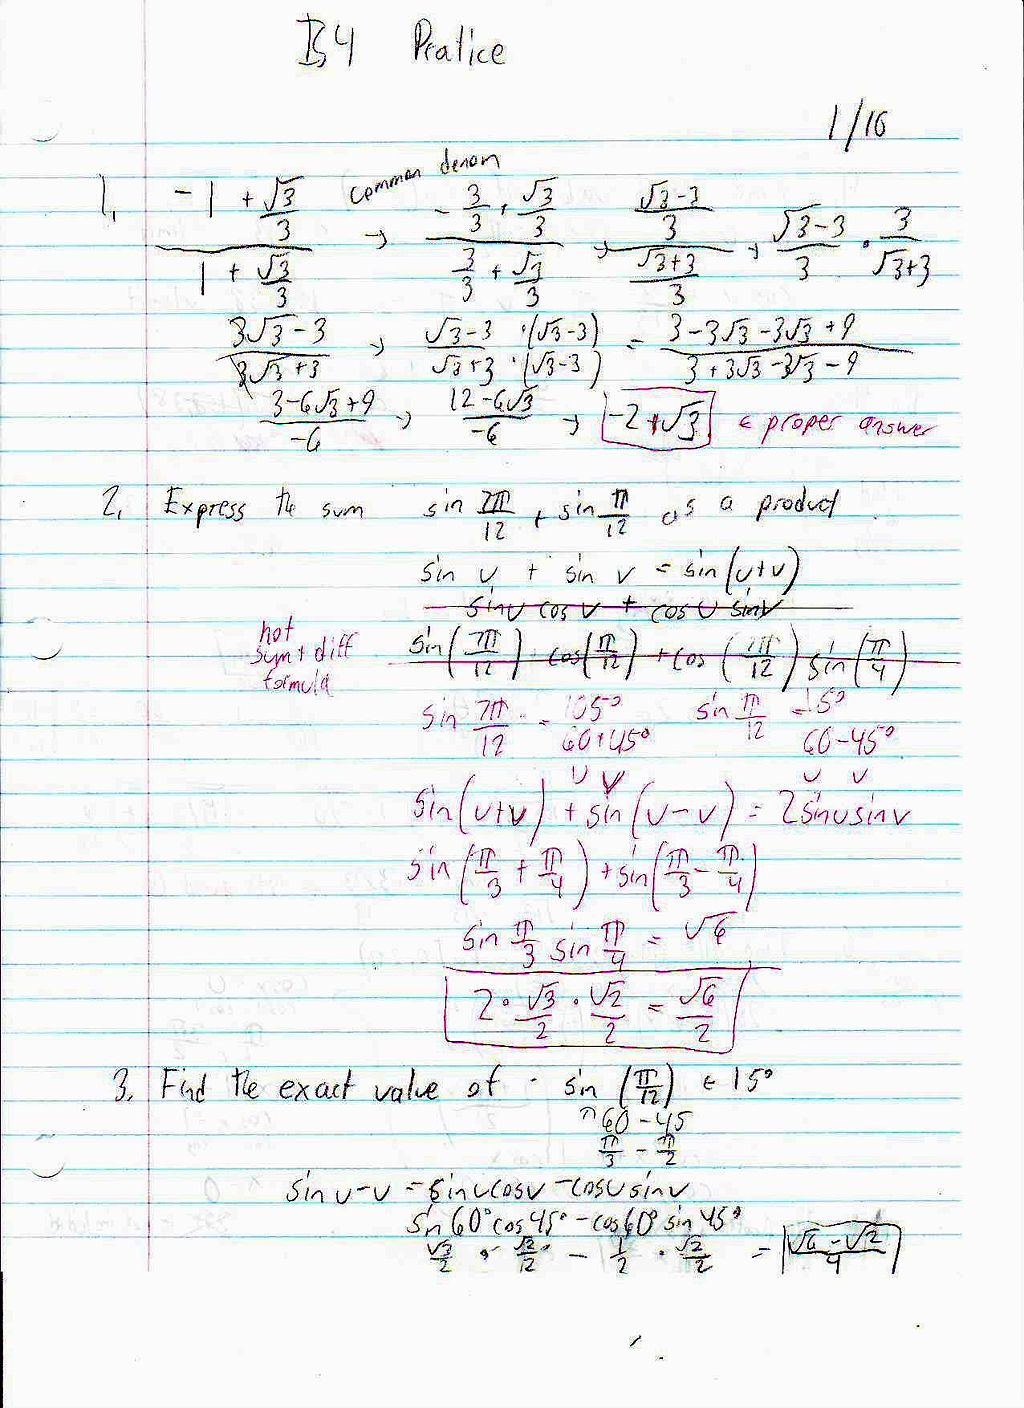 B4 Pratice
1/16
1. (-1 + √3/3)/(1 + √3/3) common denom → (-3/3 + √3/3)/(3/3 + √3/3) → ((√3-3)/3)/((√3+3)/3) → (√3-3)/3 · 3/(√3+3)
(3√3-3)/(3√3+3) → (√3-3)/(√3+3) ·(√3-3)/·(√3-3) = (3-3√3-3√3+9)/(3+3√3-3√3-9)
(3-6√3+9)/-6 → (12-6√3)/-6 → -2+√3 ← proper answer
2. Express the sum sin 7π/12 + sin π/12 as a product
sin u + sin v = sin(u+v)
sinu cosv + cosu sinv
not sum + diff formula sin(7π/12) · cos(π/12) + cos(7π/12) sin(π/4)
sin 7π/12 = 105° sin π/12 = 15°
60+45° 60-45°
u v u v
sin(u+v) + sin(u-v) = 2sinusinv
sin(π/3 + π/4) + sin(π/3 - π/4)
sin π/3 sin π/4 = √6
2 · √3/2 · √2/2 = √6/2
3. Find the exact value of - sin (π/12) ← 15°
60-45
π/3 - π/2
sin u-v = sinucosv - cosusinv
sin60°cos45° - cos60° sin45°
√3/2 · √2/12 - 1/2 · √2/2 = (√6-√2)/4